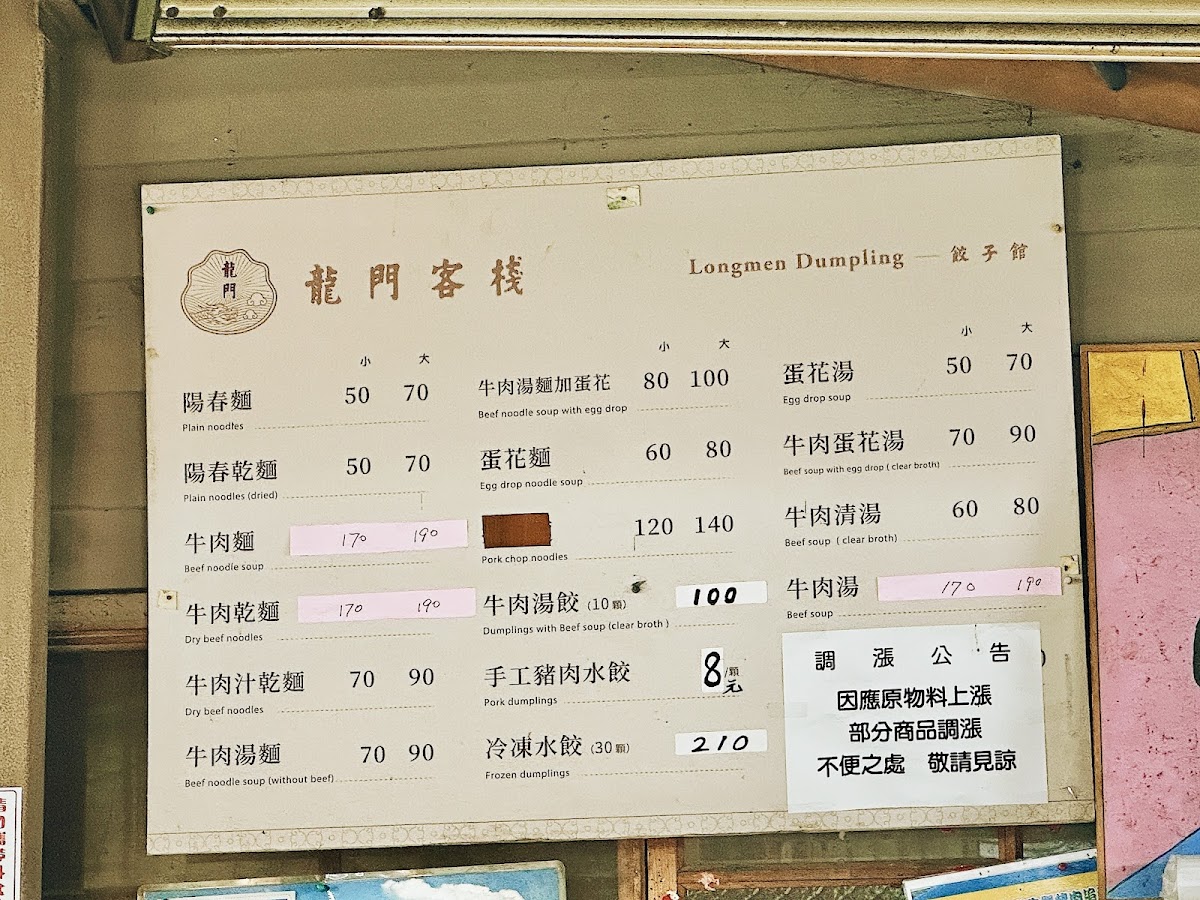 龍門
龍門客棧
Longmen Dumpling — 餃子館
小 大
陽春麵 50 70
Plain noodles
陽春乾麵 50 70
Plain noodles (dried)
牛肉麵 170 190
Beef noodle soup
牛肉乾麵 170 190
Dry beef noodles
牛肉汁乾麵 70 90
Dry beef noodles
牛肉湯麵 70 90
Beef noodle soup (without beef)
小 大
牛肉湯麵加蛋花 80 100
Beef noodle soup with egg drop
蛋花麵 60 80
Egg drop noodle soup
120 140
Pork chop noodles
牛肉湯餃 (10顆) 100
Dumplings with Beef soup (clear broth )
手工豬肉水餃 8元/顆
Pork dumplings
冷凍水餃 (30顆) 210
Frozen dumplings
小 大
蛋花湯 50 70
Egg drop soup
牛肉蛋花湯 70 90
Beef soup with egg drop ( clear broth)
牛肉清湯 60 80
Beef soup ( clear broth)
牛肉湯 170 190
Beef soup
調漲公告
因應原物料上漲
部分商品調漲
不便之處 敬請見諒